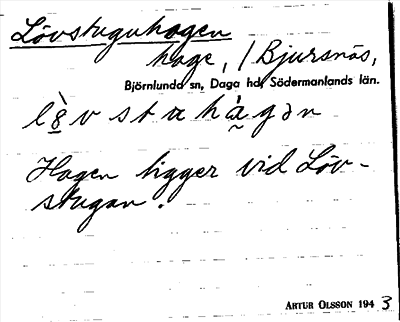 Lövstuguhagen
hage, / Bjursnäs,
Björnlunda sn, Daga hd, Södermanlands län.
Hagen ligger vid Löv-
stugan.
ARTUR OLSSON 1943